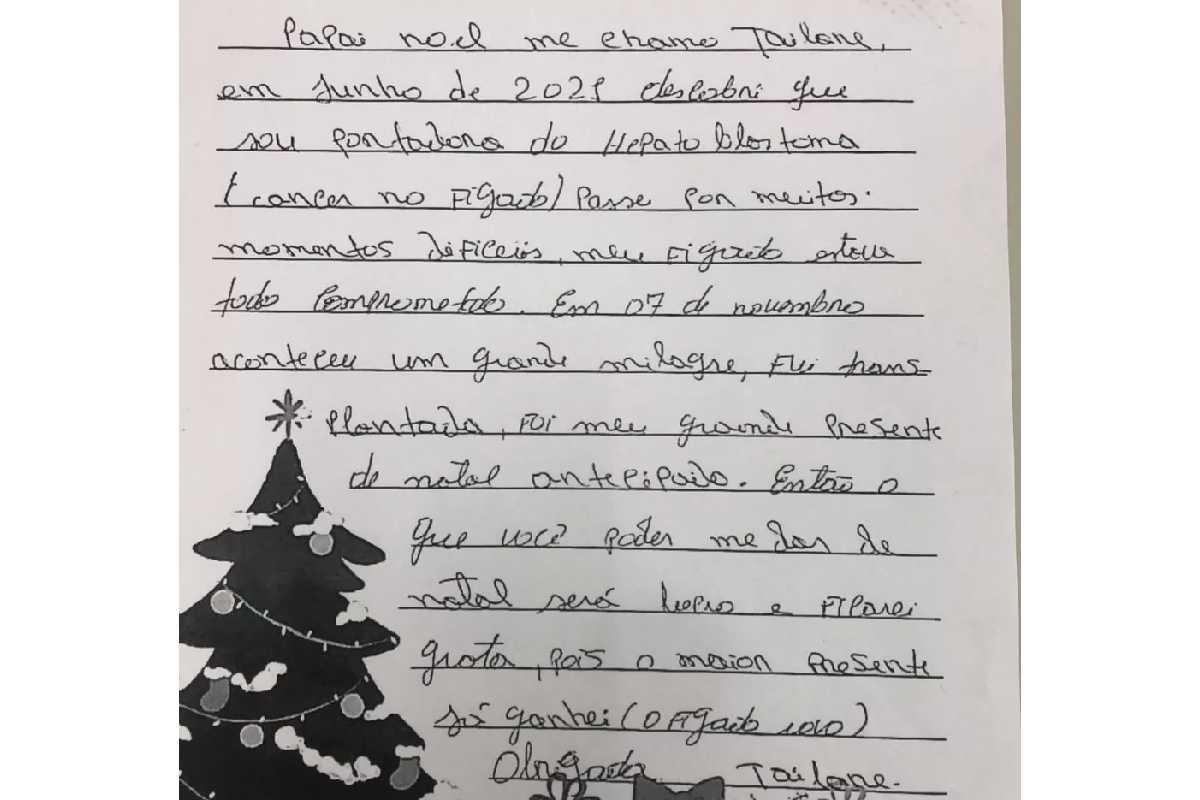 Papai noel me chamo Tailane,
em Junho de 2021 descobri que
sou portadora do Hepato blastoma
(cancer no Figado) Passe por muitos
momentos dificeis, meu Figado estava
todo comprometido. Em 07 de novembro
aconteceu um grande milagre, Fui trans-
plantada, Foi meu grande Presente
de natal antecipado. Então o
que você poder me dar de
natal será lucro e Ficarei
grata, pois o maior presente
já ganhei (O Figado novo)
Obrigada Tailane.